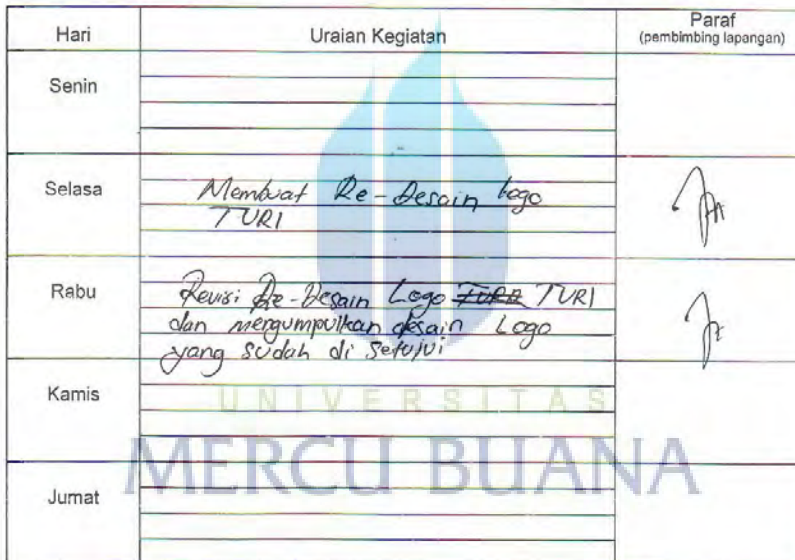 Hari Uraian Kegiatan Paraf
(pembimbing lapangan)
Senin
Selasa Membuat Re-Desain logo
TVRI
Rabu Revisi Re-Desain Logo TVRI
dan mengumpulkan desain Logo
yang sudah di setujui
Kamis
UNIVERSITAS
MERCU BUANA
Jumat